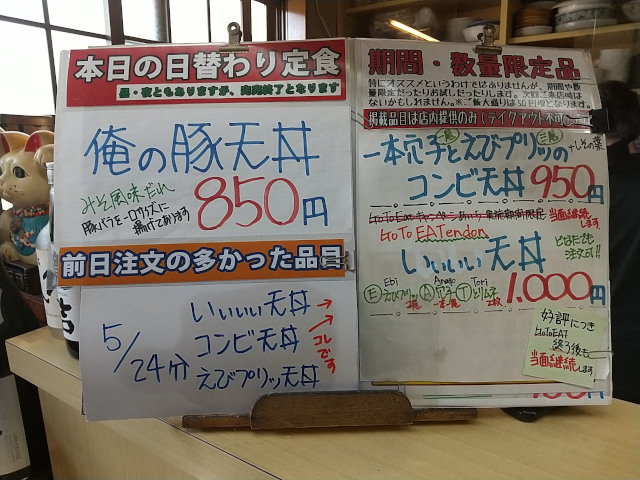 本日の日替わり定食
昼・夜ともありますが、完売終了となります
俺の豚天丼
みそ風味だれ
豚バラを一口サイズに
揚げてあります
850円
前日注文の多かった品目
5/24分
いいいい天丼
コンビ天丼
えびプリッツ天丼
コレです
期間・数量限定品
特にオススメというわけではありませんが、期間や数
量限定だったりお試しだったりします。次回ご来店時は
ないかもしれません。※ご飯大盛りは50円増となります。
掲載品目は店内提供のみ(テイクアウト不可)
一本穴子とえびプリッツの
一尾
三尾
+しその葉
コンビ天丼 950円
当面継続します
GoTo EATendon
いいいい天丼
どなたでも
注文可!!
Ebi Anago Tori
Ⓔえびプリッツ2尾 Ⓐ穴子一本 Ⓣとりムネ2枚
1.000円
好評につき
GoToEAT
終了後も
当面継続します